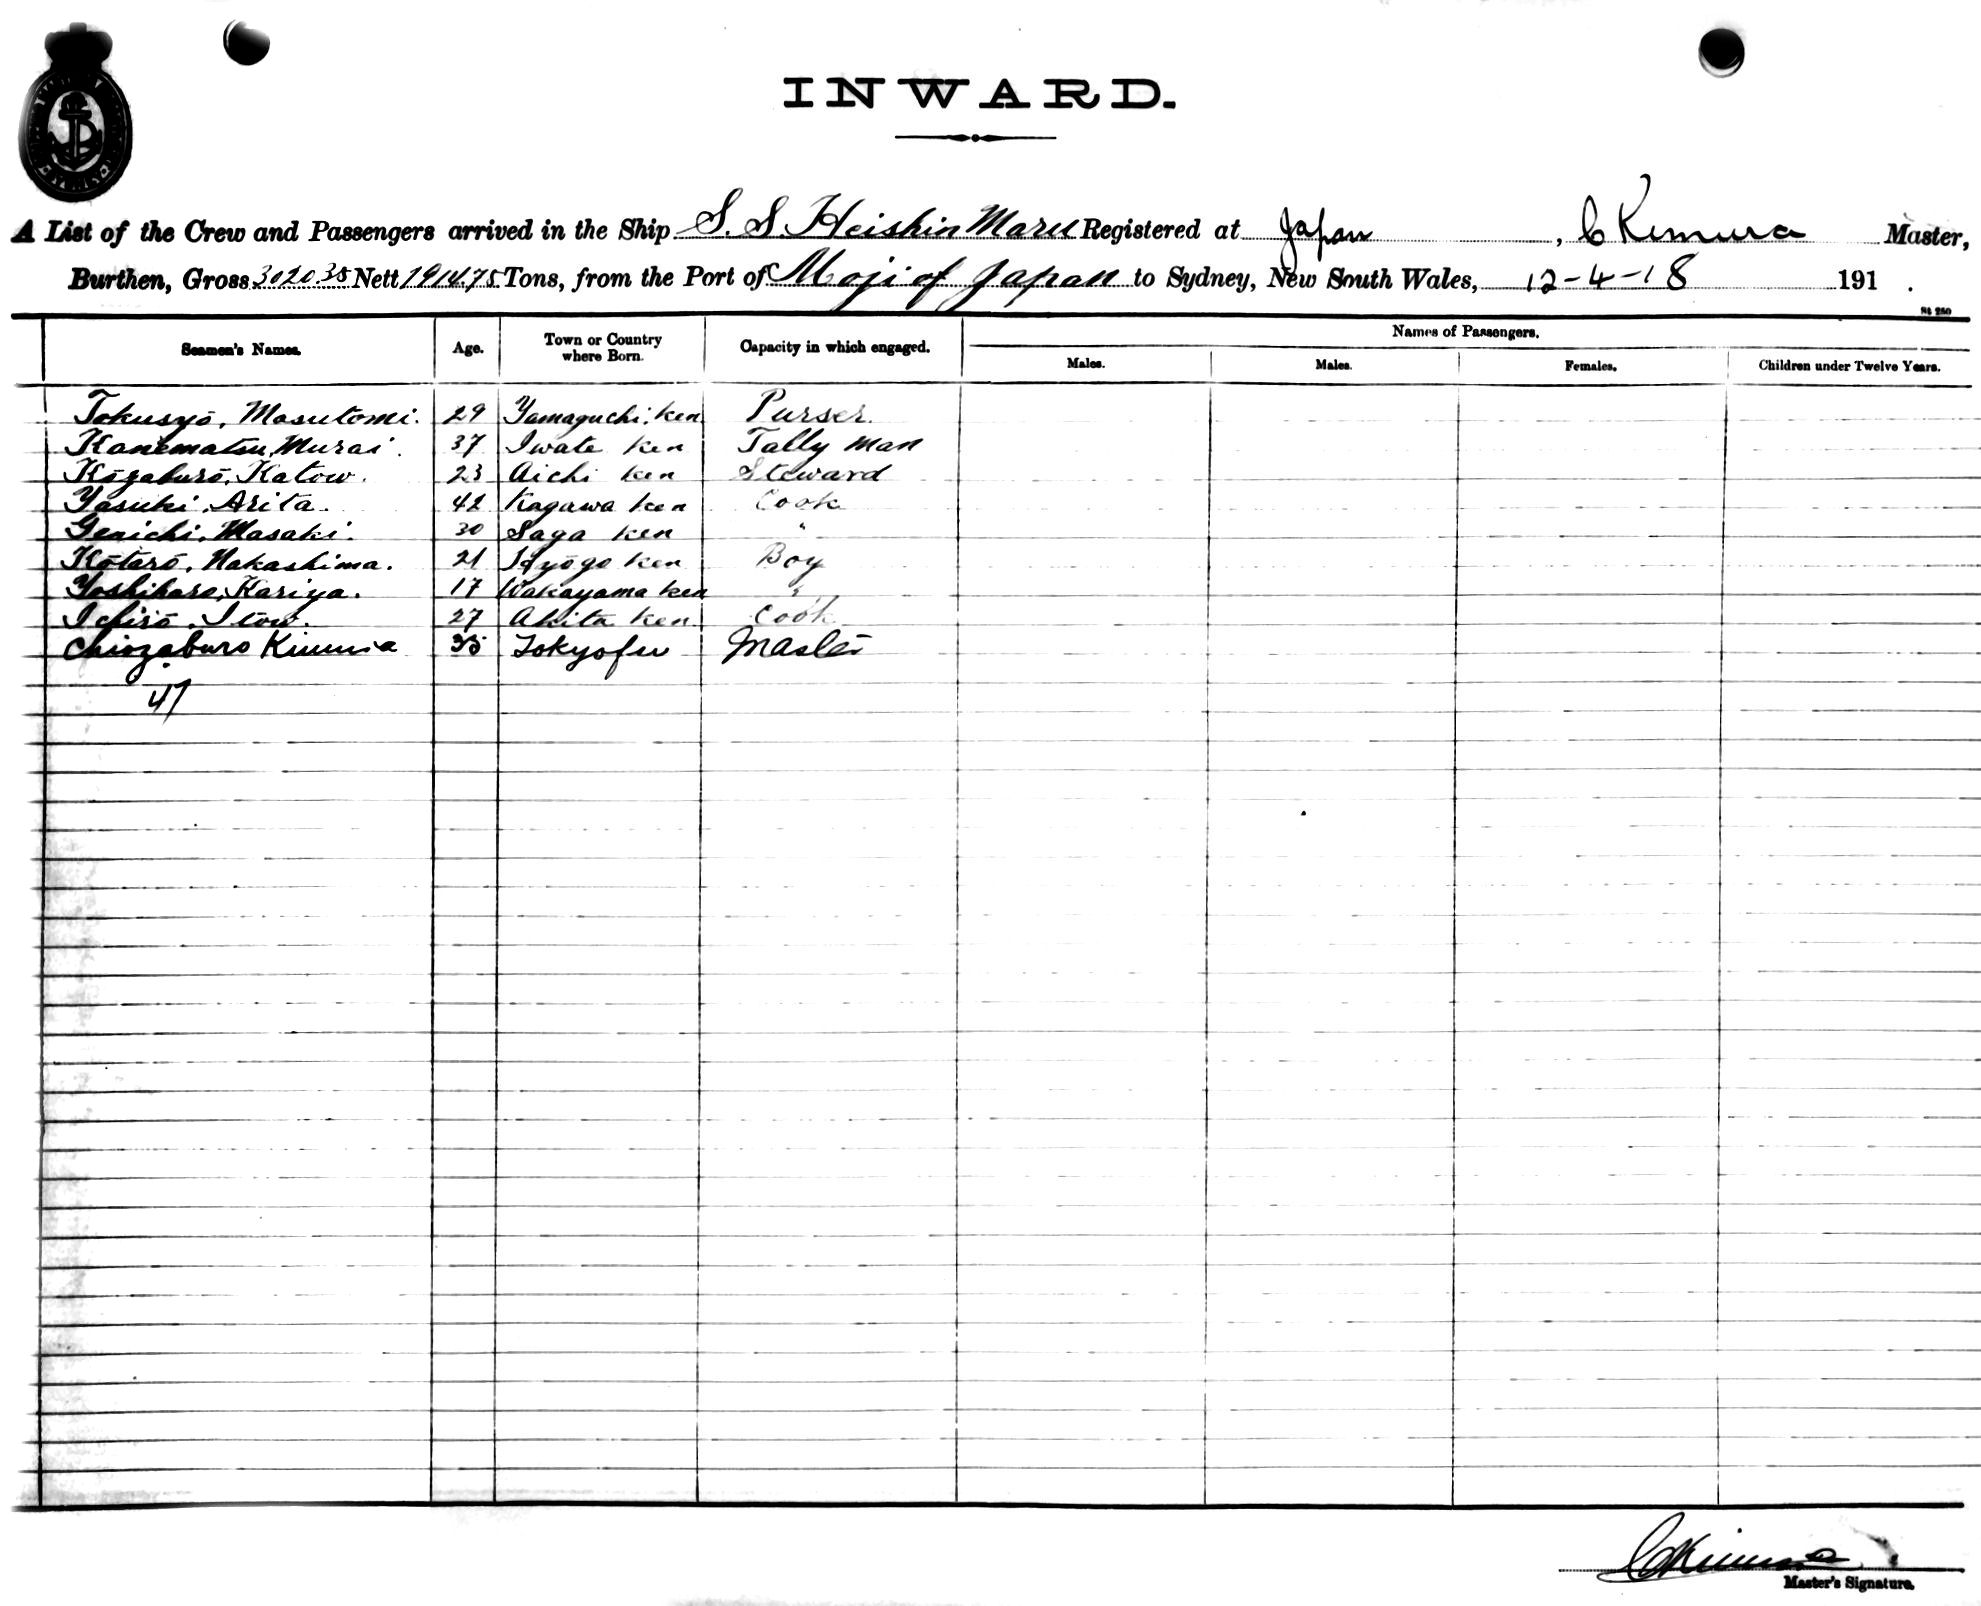 INWARD.
A List of the Crew and Passengers arrived in the Ship S. S. Heishin Maru Registered at Japan, C Kimura Master,
Burthen, Gross 3020.35 Nett 1914.75 Tons, from the Port of Moji of Japan to Sydney, New South Wales, 12-4-18 191 .
St 250
Seamen's Names. Age. Town or Country where Born. Capacity in which engaged. Names of Passengers.
Males. Males. Females. Children under Twelve Years.
Tokusyō, Masutomi. 29 Yamaguchi. ken Purser.
Kanematsu, Murai. 37 Iwate ken Tally man
Kōzaburō, Katow. 23 Aichi ken Steward
Yasuki, Arita. 42 Kagawa ken Cook
Genichi, Masaki. 30 Saga ken "
Kōtarō, Nakashima. 21 Hyōgo ken Boy
Yoshiharo, Kariya. 17 Wakayama ken "
Ichirō, Itow. 27 Akita ken Cook
Chiozaburo Kimura Tokyofu Master
47
C Kimura
Master's Signature.